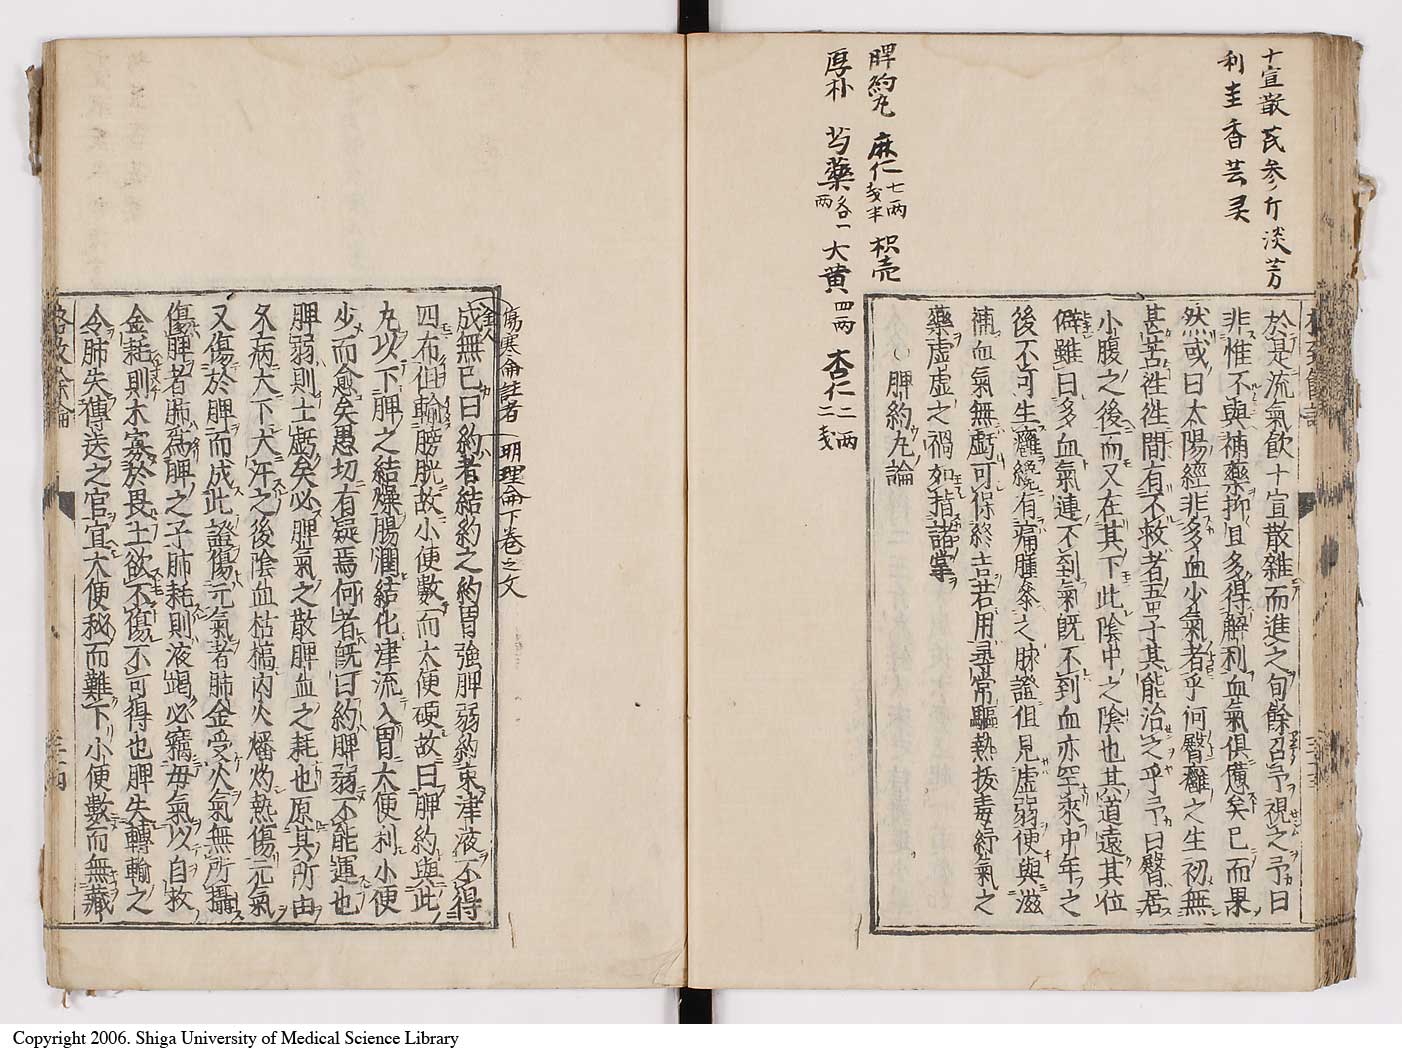 十宣散芪参斤淡芳
利圭香芸
脾約丸 麻仁七両 枳売
厚朴 芍藥各一両 大黄四両 杏仁二両
於是流氣飲十宣散雜而進之旬餘召予視之予曰
非惟不與補藥抑且多得解利血氣俱憊矣已而果
然或曰太陽經非多血少氣者乎何臀癰之生初無
甚苦往往間有不救者吾子其能治之乎予曰臀居
小腹之後而又在其下此陰中之陰也其道遠其位
僻雖曰多血氣運不到氣既不到血亦罕來中年之
後不可生癰纔有痛腫參之脉證但見虛弱便與滋
補血氣無虧可保終吉若用尋常驅熱拔毒紓氣之
藥虛虛之禍如指諸掌
脾約丸論
傷寒侖註者 明理侖下巻之文
金人
成無已曰約者結約之約胃強脾弱約束津液不得
四布但輸膀胱故小便數而大便硬故曰脾約與此
丸以下脾之結燥腸潤結化津流入胃大便利小便
少而愈矣愚切有疑焉何者既曰約脾弱不能運也
脾弱則土虧矣必脾氣之散脾血之耗也原其所由
久病大下大汗之後陰血枯槁內火燔灼熱傷元氣
又傷於脾而成此證傷元氣者肺金受火氣無所攝
傷脾者肺為脾之子肺耗則液竭必竊母氣以自救
金耗則木寡於畏土欲不傷不可得也脾失轉輸之
令肺失傳送之官宜大便秘而難下小便數而無藏
格致餘論
Copyright 2006. Shiga University of Medical Science Library